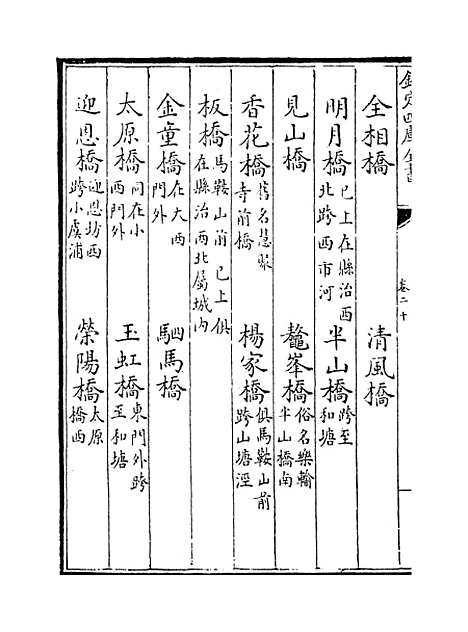 欽定四庫全書
卷二十
全相橋 清風橋
明月橋 已上在縣治西北跨西市河 半山橋 跨至和塘
見山橋 鼇峯橋 俗名樂輸半山橋南
香花橋 舊名慧聚寺前橋 楊家橋 俱馬鞍山前跨山塘涇
板橋 馬鞍山前已上俱在縣治西北屬城内
金童橋 在大西門外 駟馬橋
太原橋 同在小西門外 玉虹橋 東門外跨至和塘
迎恩橋 迎恩坊西跨小虞浦 榮陽橋 太原橋西